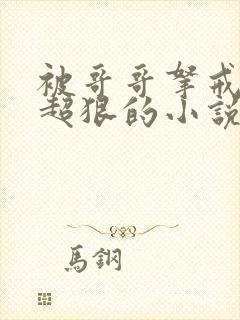 被哥哥拏戒
超狠的小說
馬鋼